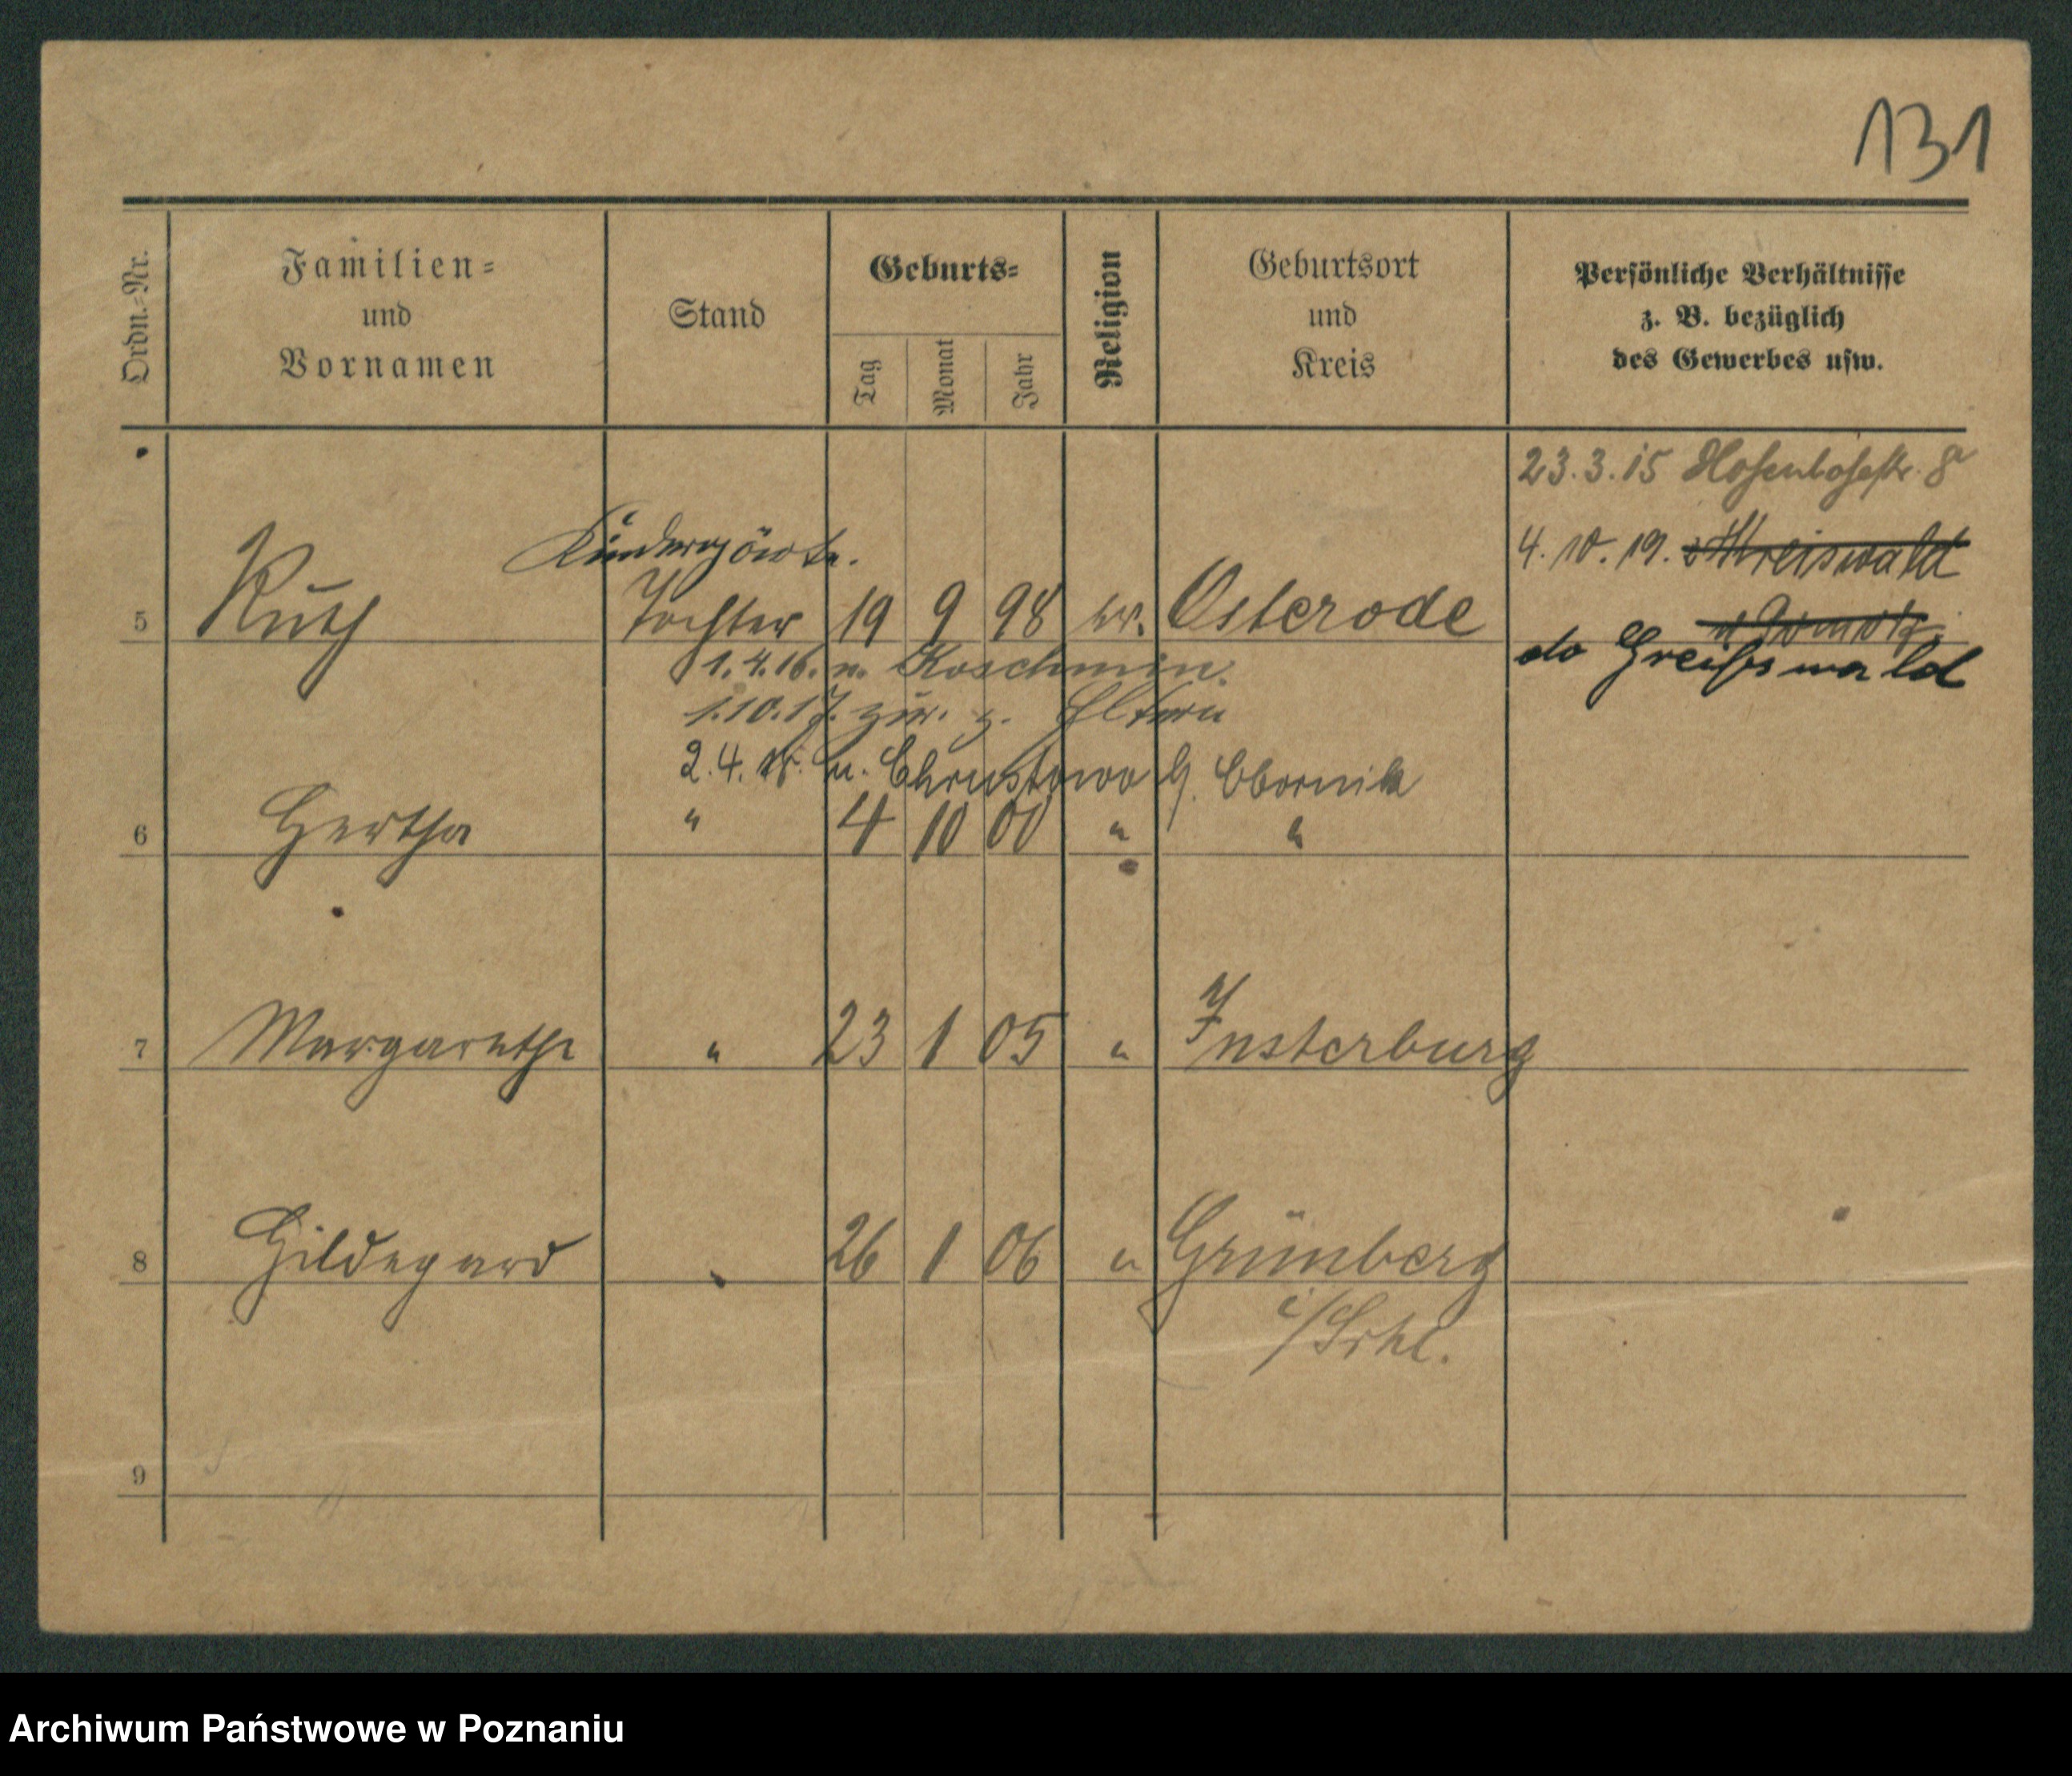 131
Ordn.-Nr.
Familien-
und
Vornamen
Stand
Geburts-
Tag
Monat
Jahr
Religion
Geburtsort
und
Kreis
Persönliche Verhältnisse
z. B. bezüglich
des Gewerbes usw.
23.3.15
4.10.19.
5 Ruth Tochter 19 9 98 Osterode
do Greifswald
1.4.16. n. Koschmin.
1.10.17. zur. z. Eltern
2.4. n. Obornik
6 Hertha " 4 10 00 " "
7 Margarethe " 23 1 05 " Insterburg
8 Hildegard " 26 1 06 " Grünberg
i/Schl.
9
Archiwum Państwowe w Poznaniu